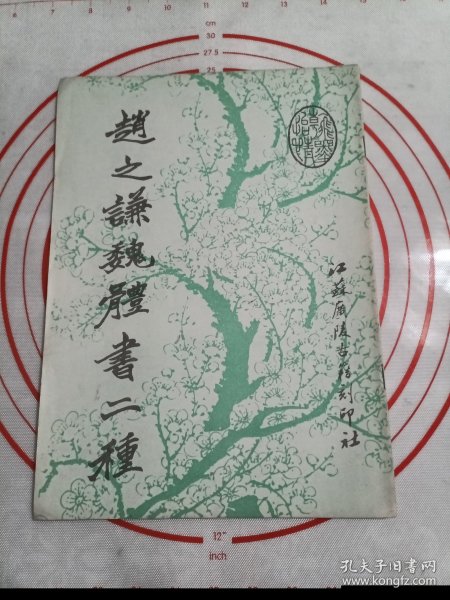 趙之謙魏體書二種
江蘇廣陵古籍刻印社
cm
30
27.5
25
12"
inch
孔夫子旧书网
www.kongfz.com